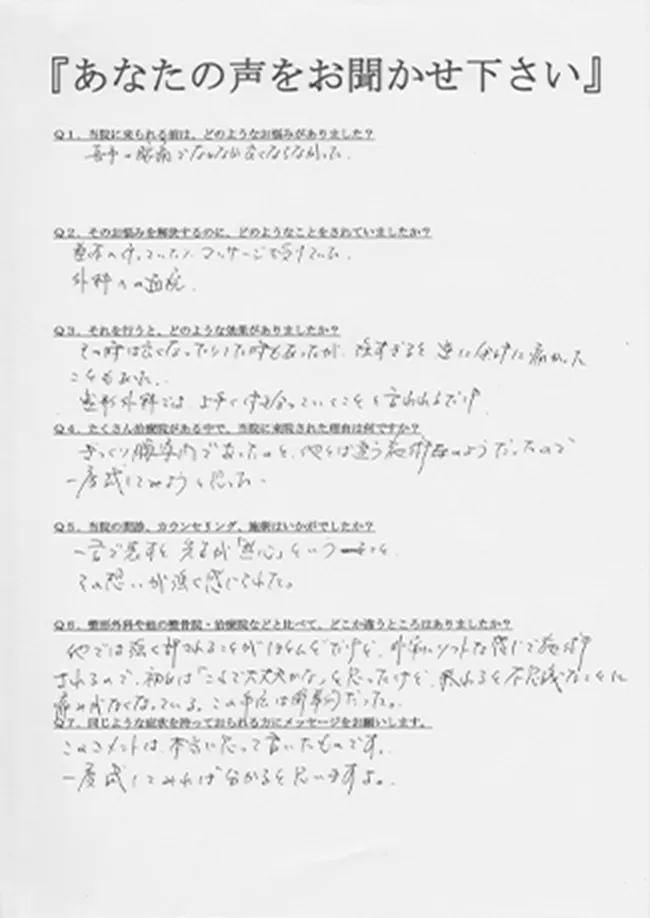 『あなたの声をお聞かせ下さい』
Q1．当院に来られる前は、どのようなお悩みがありましたか？
でなかなか良くならなかった．
Q2．そのお悩みを解決するのに、どのようなことをされていましたか？
マッサージを受けていた．
外科への通院．
Q3．それを行うと、どのような効果がありましたか？
その時は良くなったりした時もあったが、強すぎると逆に余計に痛かった
こともあった．
整形外科では、上手く付き合っていくことと言われるだけ．
Q4．たくさん治療院がある中で、当院に来院された理由は何ですか？
ぎっくり腰専門であったのと、他とは違う施術法のようだったので
一度試してみようと思った．
Q5．当院の問診、カウンセリング、施術はいかがでしたか？
一言で表すと 先生が「熱心」という
その想いが強く感じとれた。
Q6．整形外科や他の整骨院・治療院などと比べて、どこか違うところはありましたか？
他では強く押されることがほとんどだけど、非常にソフトな感じで施術
されるので、初めは「これで大丈夫かな」と思ったけど、帰れると不思議なことに
痛みがなくなっている。この手法は衝撃的だった。
Q7．同じような症状を持っておられる方にメッセージをお願いします。
このコメントは、本当に思って書いたものです．
一度試してみれば分かると思いますよ。